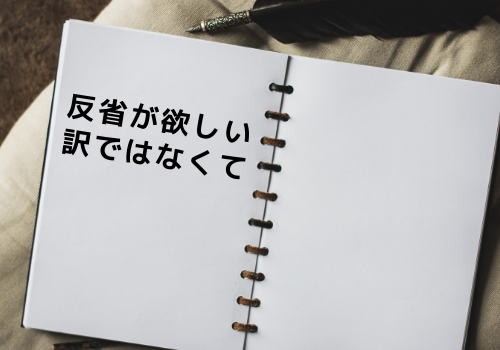 反省が欲しい
訳ではなくて